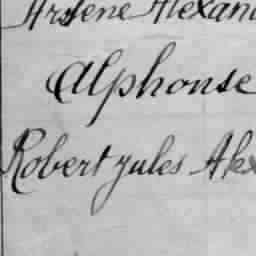 Arsène Alexan
Alphonse
Robert Jules Alex